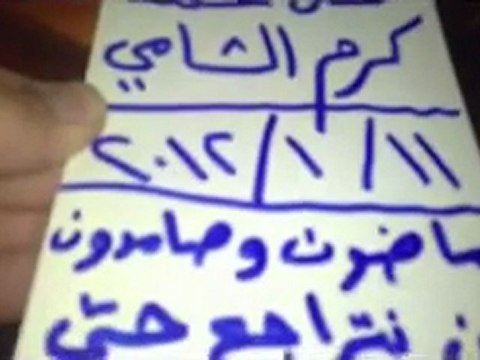 كرم الشامي
٢٠١٢/١/١١
ماضون وصامدون
نتراجع حتى